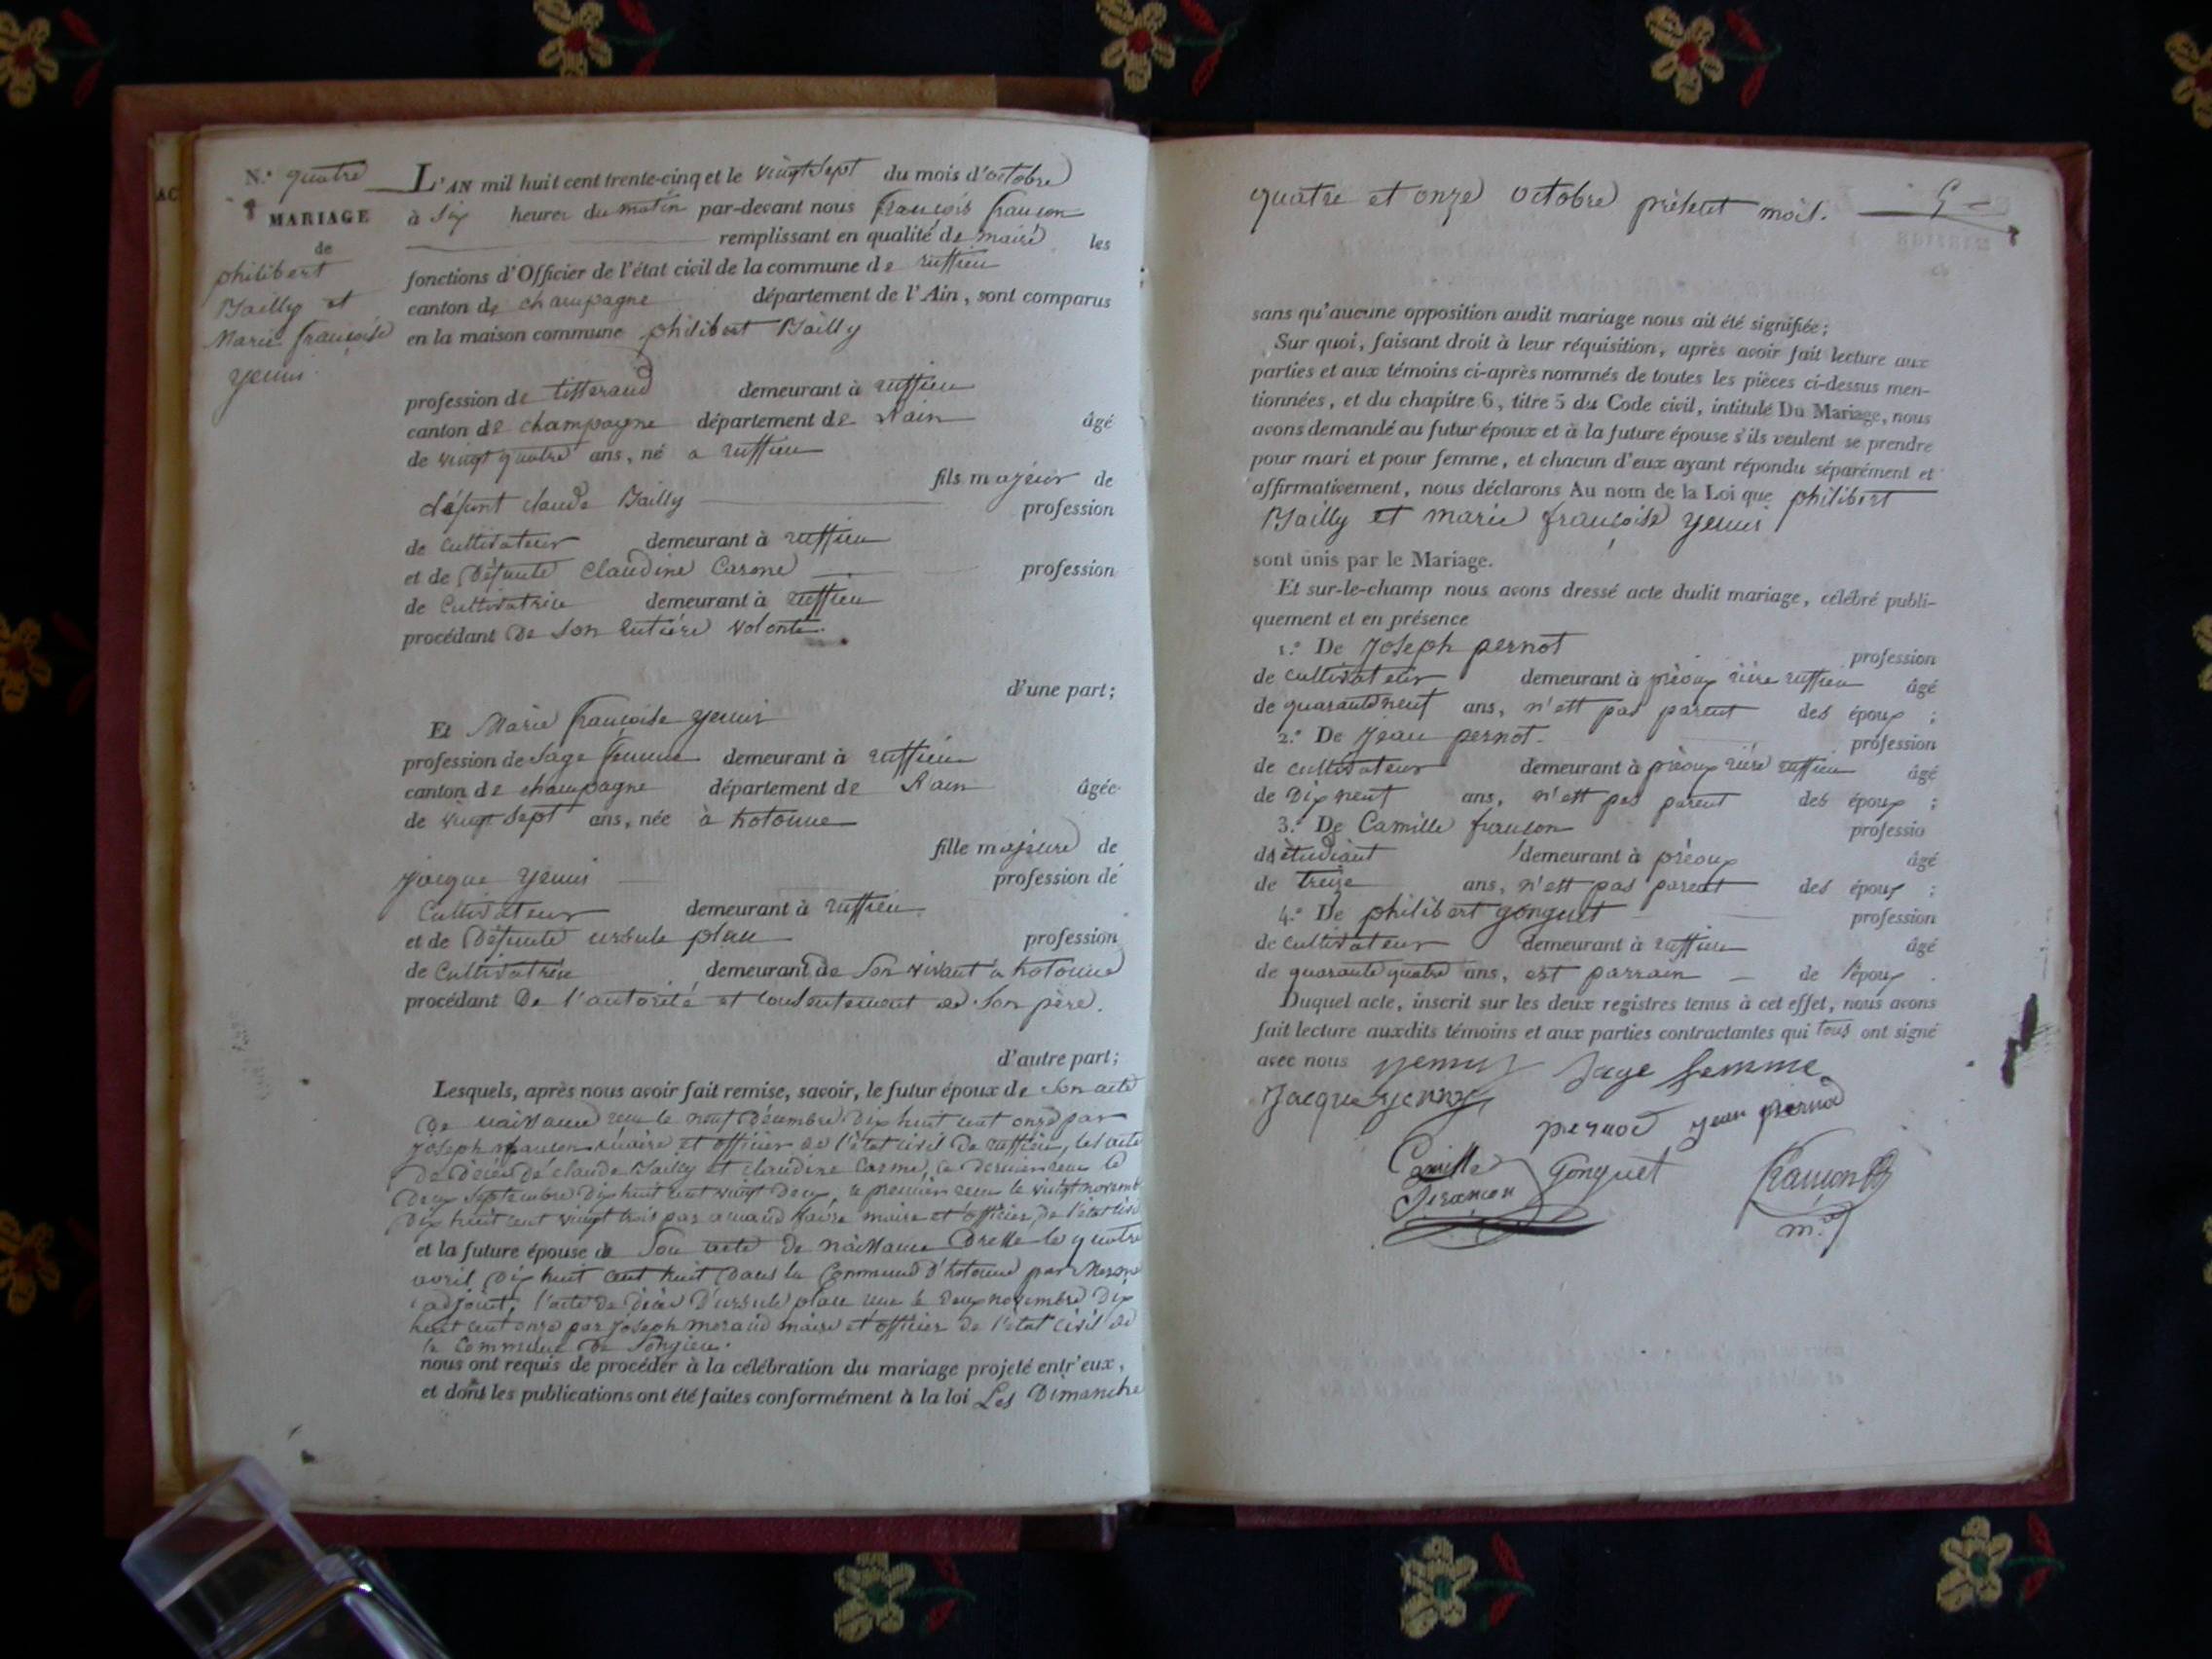 N.° quatre
MARIAGE
de
philibert
Bailly et
Marie françoise
yenni
L'AN mil huit cent trente-cinq et le vingt sept du mois d'octobre
à six heures du matin par-devant nous françois françon
remplissant en qualité de maire les
fonctions d'Officier de l'état civil de la commune de ruffieu
canton de champagne département de l'Ain, sont comparus
en la maison commune philibert Bailly
profession de tisserand demeurant à ruffieu
canton de champagne département de Lain âgé
de vingt quatre ans, né a ruffieu
fils majeur de
défunt claude Bailly profession
de cultivateur demeurant à ruffieu
et de Défunte Claudine Carme profession
de Cultivatrice demeurant à ruffieu
procédant De Son entière volonté.
d'une part;
Et Marie françoise yenni
profession de Sage femme demeurant à ruffieu
canton de champagne département de Lain âgée
de vingt Sept ans, née à hotonne
fille majeure de
jacque yenni profession de
Cultivateur demeurant à ruffieu
et de Défunte ursule plan profession
de Cultivatrice demeurant de Son vivant à hotonne
procédant De l'autorité et consentement de Son père.
d'autre part;
Lesquels, après nous avoir fait remise, savoir, le futur époux de Son acte
De naissance reçu le neuf Décembre Dix huit cent onze par
joseph françon maire et officier de l'état civil De ruffieu, les acte
De Décès de claude Bailly et claudine Carme, ce Dernier reçu le
Deux Septembre Dix huit cent vingt Deux, le premier reçu le vingt novemb
Dix huit cent vingt trois par maire et officier De l'état civil
et la future épouse de Son acte De naissance Dressé le quatre
avril Dix huit cent huit Dans la Commune D'hotonne par
adjoint, l'acte De Décès D'ursule plan reçu le Deux novembre Dix
huit cent onze par joseph moraud maire et officier De l'état civil de
la Commune De Songieu.
nous ont requis de procéder à la célébration du mariage projeté entr'eux,
et dont les publications ont été faites conformément à la loi Les Dimanche
quatre et onze octobre présent mois.
sans qu'aucune opposition audit mariage nous ait été signifiée;
Sur quoi, faisant droit à leur réquisition, après avoir fait lecture aux
parties et aux témoins ci-après nommés de toutes les pièces ci-dessus men-
tionnées, et du chapitre 6, titre 5 du Code civil, intitulé Du Mariage, nous
avons demandé au futur époux et à la future épouse s'ils veulent se prendre
pour mari et pour femme, et chacun d'eux ayant répondu séparément et
affirmativement, nous déclarons Au nom de la Loi que philibert
Bailly et marie françoise yenni
sont unis par le Mariage.
Et sur-le-champ nous avons dressé acte dudit mariage, célébré publi-
quement et en présence
1.° De Joseph pernot profession
de cultivateur demeurant à prèoux rière ruffieu âgé
de quarante neuf ans, n'est pas parent des époux ;
2.° De jean pernot. profession
de cultivateur demeurant à prèoux rière ruffieu âgé
de Dix neuf ans, n'est pas parent des époux ;
3.° De Camille françon professio
de étudiant demeurant à prèoux âgé
de treize ans, n'est pas parent des époux ;
4.° De philibert gonguet profession
de cultivateur demeurant à ruffieu âgé
de quarante quatre ans, est parrain de l'époux .
Duquel acte, inscrit sur les deux registres tenus à cet effet, nous avons
fait lecture auxdits témoins et aux parties contractantes qui tous ont signé
avec nous yenny Sage femme
Jacque yenny
pernod jean pernod
Camille Gonguet françon
Françon m.re